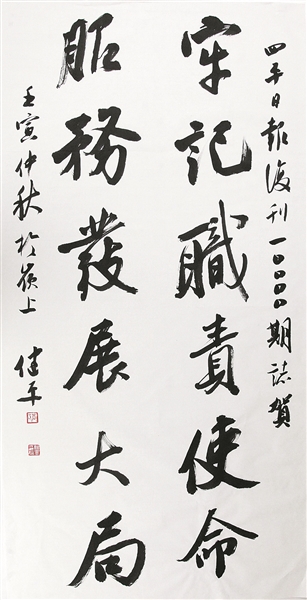 四平日报復刊一〇〇〇〇期誌賀
牢記職責使命
服務發展大局
壬寅仲秋於嶺上
佳平